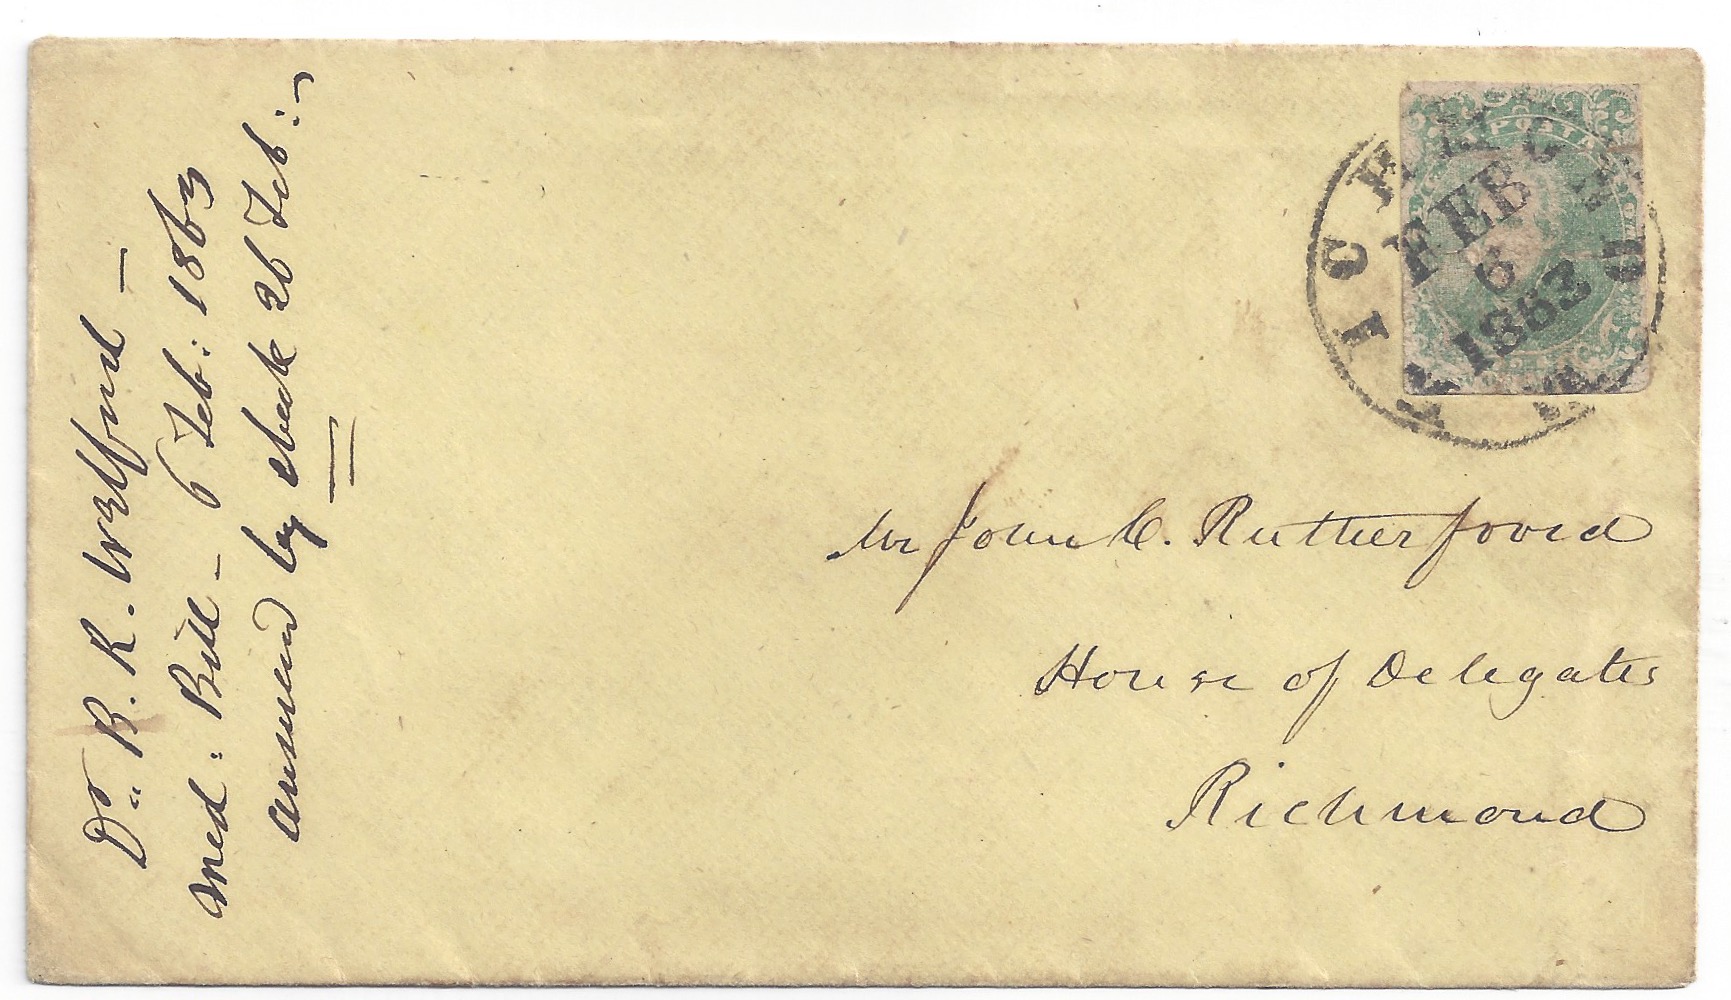 Dr. B. R. Wellford —
Med: Bill – 6 Feb: 1863
answered by check 26 Feb:
RICHMOND
FEB
6
1863
POSTA
Mr John C. Rutherfoord
House of Delegates
Richmond